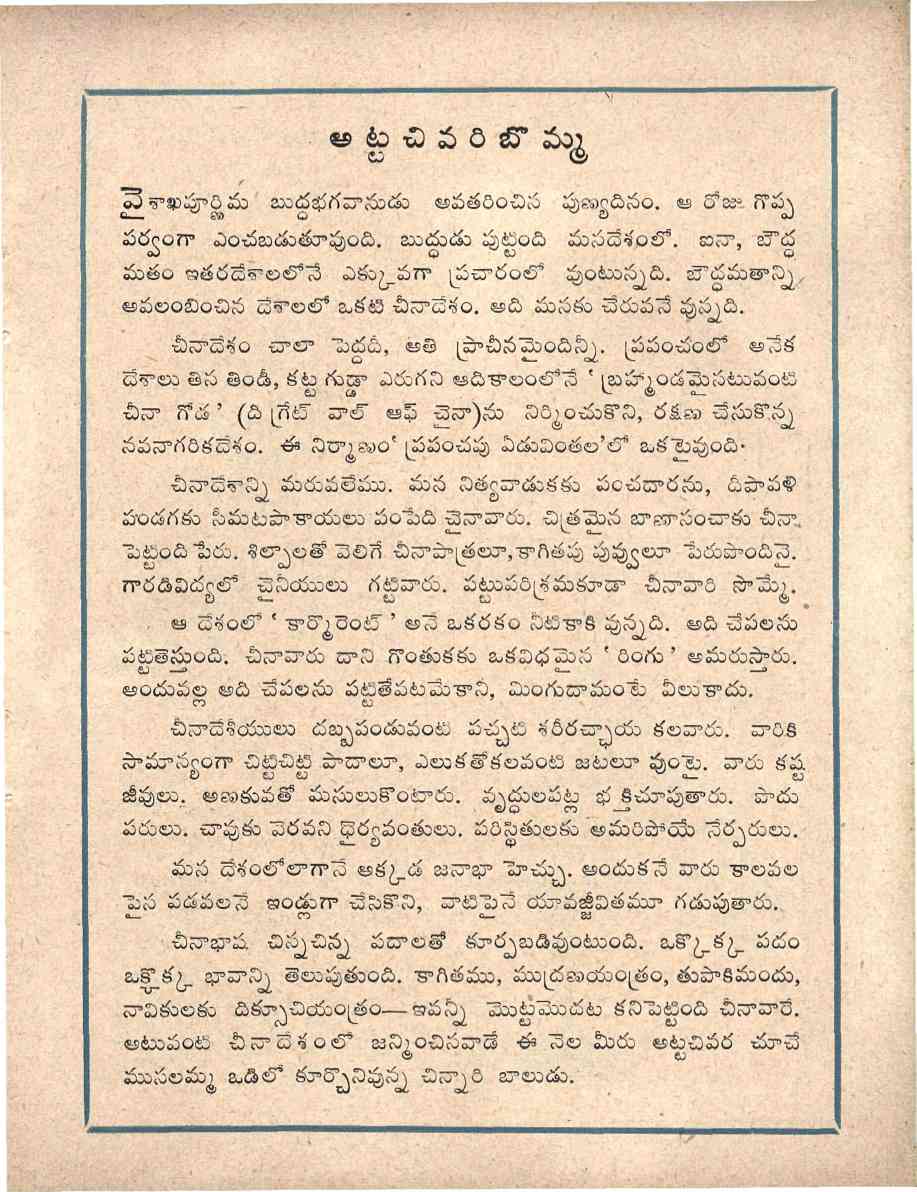 అట్టచివరిబొమ్మ
వైశాఖపూర్ణిమ బుద్ధభగవానుడు అవతరించిన పుణ్యదినం. ఆ రోజు గొప్ప
పర్వంగా ఎంచబడుతూవుంది. బుద్ధుడు పుట్టింది మనదేశంలో. ఐనా, బౌద్ధ
మతం ఇతరదేశాలలోనే ఎక్కువగా ప్రచారంలో వుంటున్నది. బౌద్ధమతాన్ని
అవలంబించిన దేశాలలో ఒకటి చీనాదేశం. అది మనకు చేరువనే వున్నది.
చీనాదేశం చాలా పెద్దదీ, అతి ప్రాచీనమైందిన్నీ. ప్రపంచంలో అనేక
దేశాలు తిన తిండీ, కట్ట గుడ్డా ఎరుగని ఆదికాలంలోనే ‘బ్రహ్మాండమైనటువంటి
చీనా గోడ’ (ది గ్రేట్ వాల్ ఆఫ్ చైనా)ను నిర్మించుకొని, రక్షణ చేసుకొన్న
నవనాగరికదేశం. ఈ నిర్మాణం ‘ప్రపంచపు ఏడువింతల’లో ఒకటైవుంది.
చీనాదేశాన్ని మరువలేము. మన నిత్యవాడుకకు పంచదారను, దీపావళి
పండగకు సీమటపాకాయలు పంపేది చైనావారు. చిత్రమైన బాణాసంచాకు చీనా
పెట్టింది పేరు. శిల్పాలతో వెలిగే చీనాపాత్రలూ, కాగితపు పువ్వులూ పేరుపొందినై.
గారడివిద్యలో చైనీయులు గట్టివారు. పట్టుపరిశ్రమకూడా చీనావారి సొమ్మే.
ఆ దేశంలో ‘కార్మొరెంట్’ అనే ఒకరకం నీటికాకి వున్నది. అది చేపలను
పట్టితెస్తుంది. చీనావారు దాని గొంతుకకు ఒకవిధమైన ‘రింగు’ అమరుస్తారు.
అందువల్ల అది చేపలను పట్టితేవటమేకాని, మింగుదామంటే వీలుకాదు.
చీనాదేశీయులు దబ్బపండువంటి పచ్చటి శరీరచ్ఛాయ కలవారు. వారికి
సామాన్యంగా చిట్టిచిట్టి పాదాలూ, ఎలుకతోకలవంటి జటలూ వుంటై. వారు కష్ట
జీవులు. అణకువతో మసులుకొంటారు. వృద్ధులపట్ల భక్తిచూపుతారు. పాదు
పరులు. చావుకు వెరవని ధైర్యవంతులు. పరిస్థితులకు అమరిపోయే నేర్పరులు.
మన దేశంలోలాగానే అక్కడ జనాభా హెచ్చు. అందుకనే వారు కాలవల
పైన పడవలనే ఇండ్లుగా చేసికొని, వాటిపైనే యావజ్జీవితమూ గడుపుతారు.
చీనాభాష చిన్నచిన్న పదాలతో కూర్పబడివుంటుంది. ఒక్కొక్క పదం
ఒక్కొక్క భావాన్ని తెలుపుతుంది. కాగితము, ముద్రణయంత్రం, తుపాకిమందు,
నావికులకు దిక్సూచియంత్రం—ఇవన్నీ మొట్టమొదట కనిపెట్టింది చీనావారే.
అటువంటి చీనాదేశంలో జన్మించినవాడే ఈ నెల మీరు అట్టచివర చూచే
ముసలమ్మ ఒడిలో కూర్చొనివున్న చిన్నారి బాలుడు.